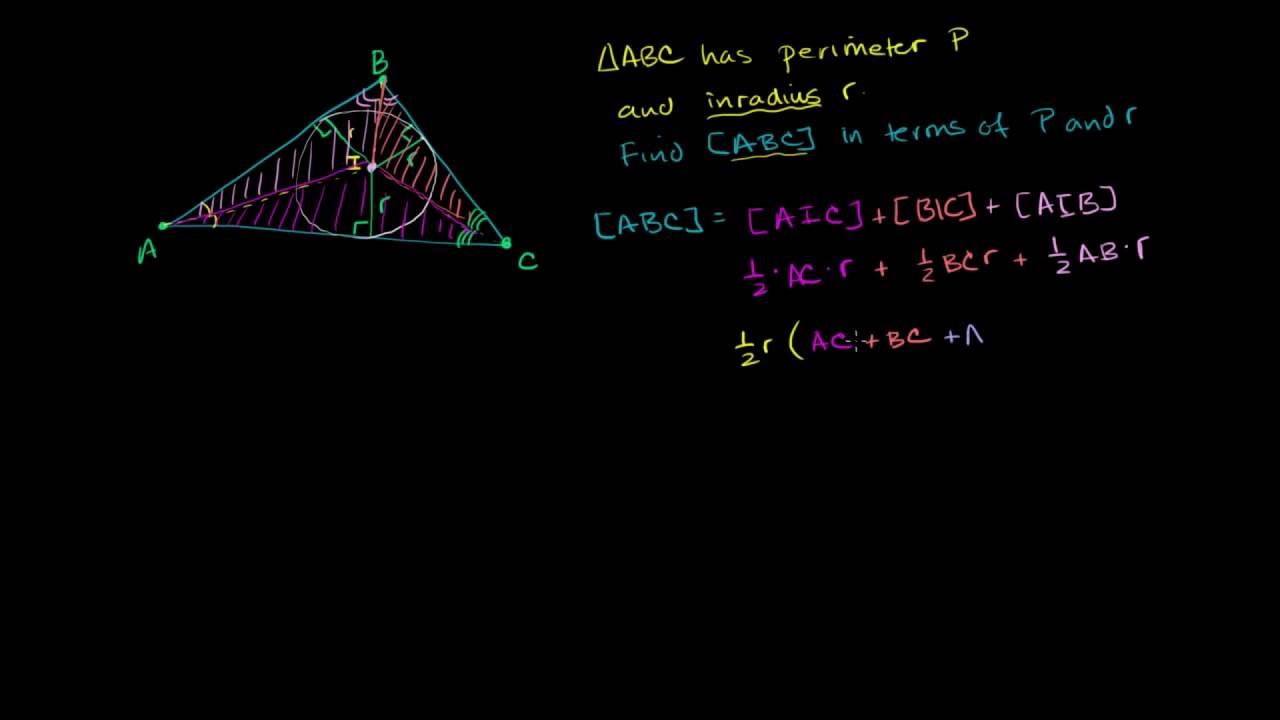 B
A
C
I
r
r
r
△ABC has perimeter P
and inradius r.
Find [ABC] in terms of P and r
[ABC] = [AIC] + [BIC] + [AIB]
1/2 · AC · r + 1/2 BC r + 1/2 AB · r
1/2 r ( AC + BC + A